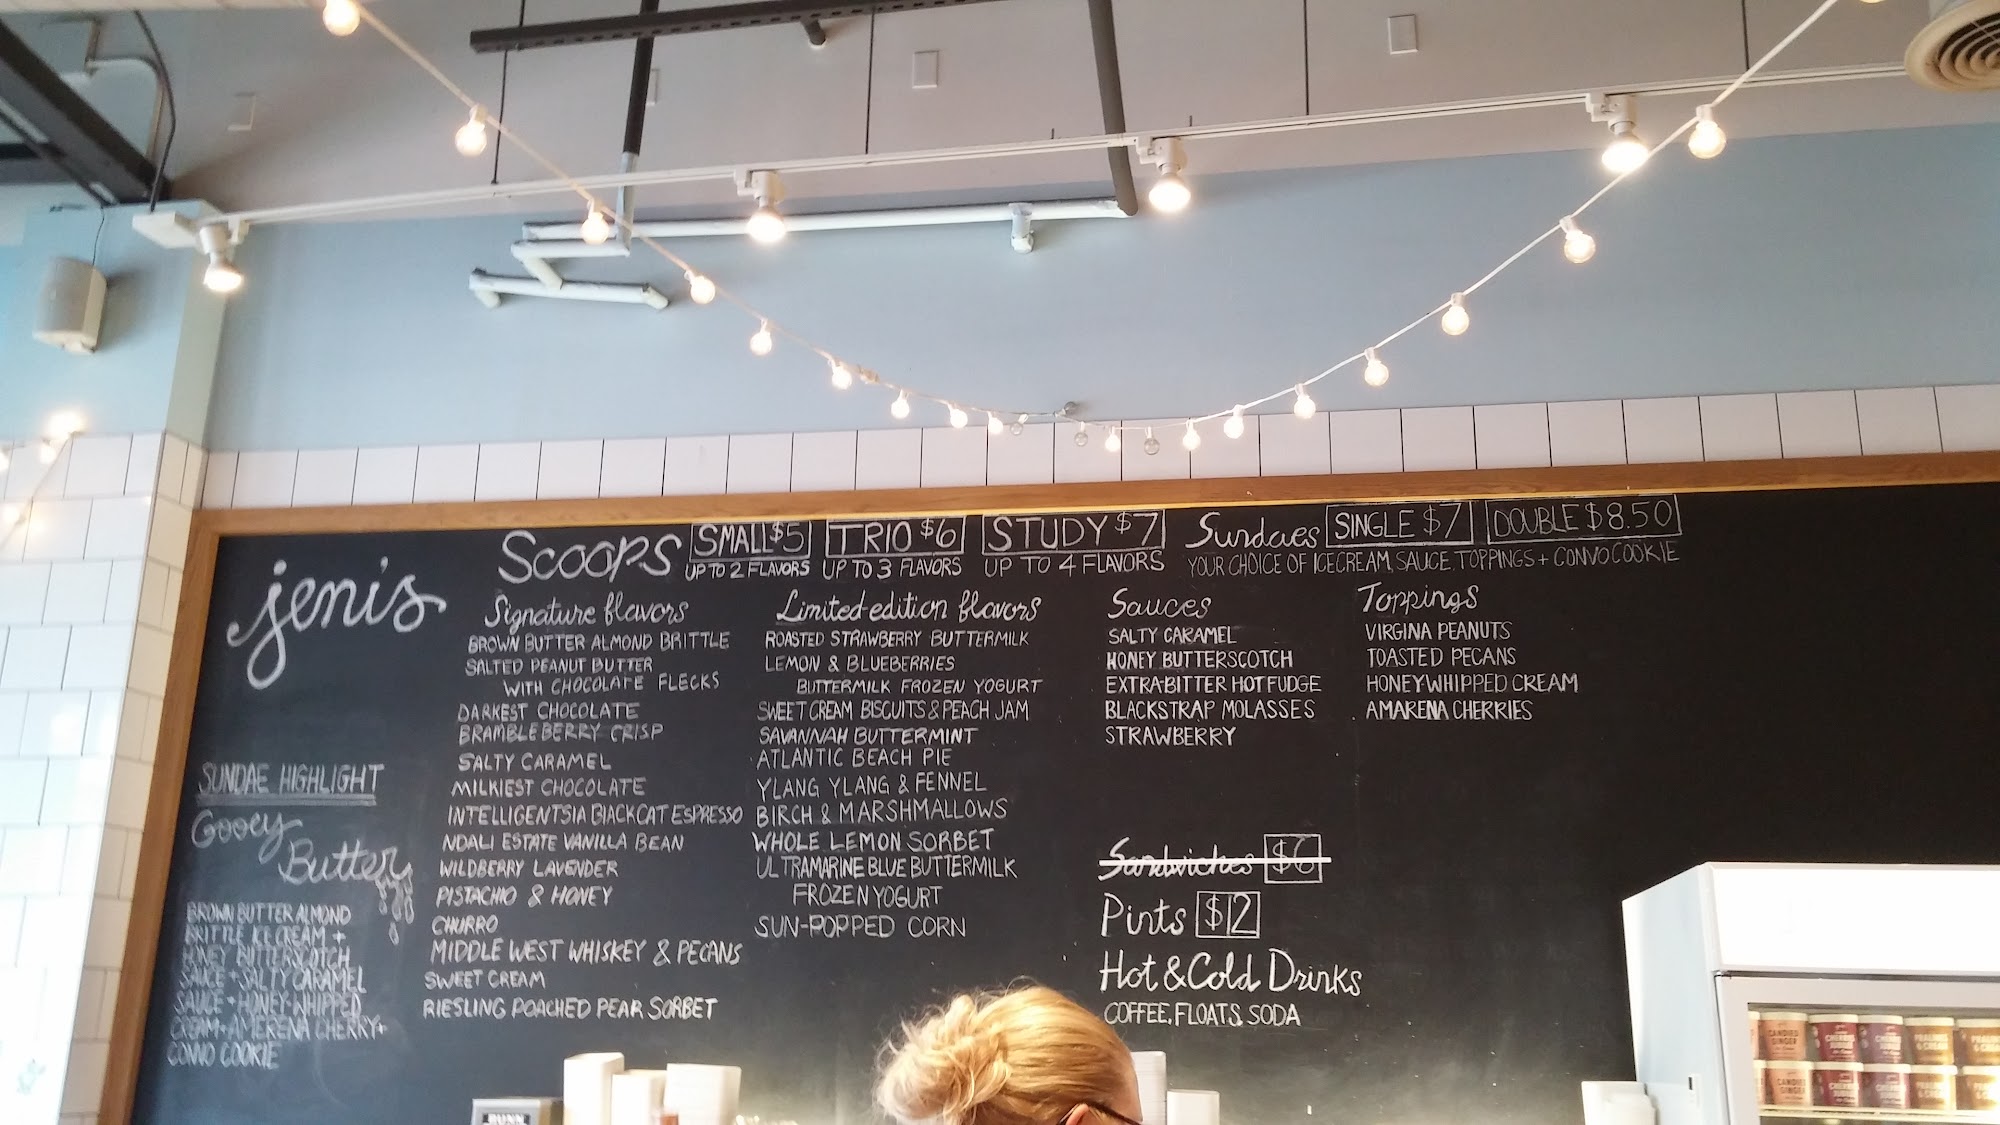 jeni's
SUNDAE HIGHLIGHT
Gooey
Butter
BROWN BUTTER ALMOND
BRITTLE ICE CREAM +
HONEY BUTTERSCOTCH
SAUCE + SALTY CARAMEL
SAUCE + HONEY-WHIPPED
CREAM + AMERENA CHERRY +
CONVO COOKIE
Scoops
SMALL $5
UP TO 2 FLAVORS
TRIO $6
UP TO 3 FLAVORS
STUDY $7
UP TO 4 FLAVORS
Signature flavors
BROWN BUTTER ALMOND BRITTLE
SALTED PEANUT BUTTER
WITH CHOCOLATE FLECKS
DARKEST CHOCOLATE
BRAMBLEBERRY CRISP
SALTY CARAMEL
MILKIEST CHOCOLATE
INTELLIGENTSIA BLACK CAT ESPRESSO
NDALI ESTATE VANILLA BEAN
WILDBERRY LAVENDER
PISTACHIO & HONEY
CHURRO
MIDDLE WEST WHISKEY & PECANS
SWEET CREAM
RIESLING POACHED PEAR SORBET
Limited-edition flavors
ROASTED STRAWBERRY BUTTERMILK
LEMON & BLUEBERRIES
BUTTERMILK FROZEN YOGURT
SWEET CREAM BISCUITS & PEACH JAM
SAVANNAH BUTTERMINT
ATLANTIC BEACH PIE
YLANG YLANG & FENNEL
BIRCH & MARSHMALLOWS
WHOLE LEMON SORBET
ULTRAMARINE BLUE BUTTERMILK
FROZEN YOGURT
SUN-POPPED CORN
Sundaes SINGLE $7 DOUBLE $8.50
YOUR CHOICE OF ICE CREAM, SAUCE, TOPPINGS + CONVO COOKIE
Sauces
SALTY CARAMEL
HONEY BUTTERSCOTCH
EXTRA-BITTER HOT FUDGE
BLACKSTRAP MOLASSES
STRAWBERRY
Toppings
VIRGINA PEANUTS
TOASTED PECANS
HONEY WHIPPED CREAM
AMARENA CHERRIES
Sandwiches $6
Pints $12
Hot & Cold Drinks
COFFEE, FLOATS, SODA
BUNN
CANDIED
GINGER
PRALINES
& CREAM